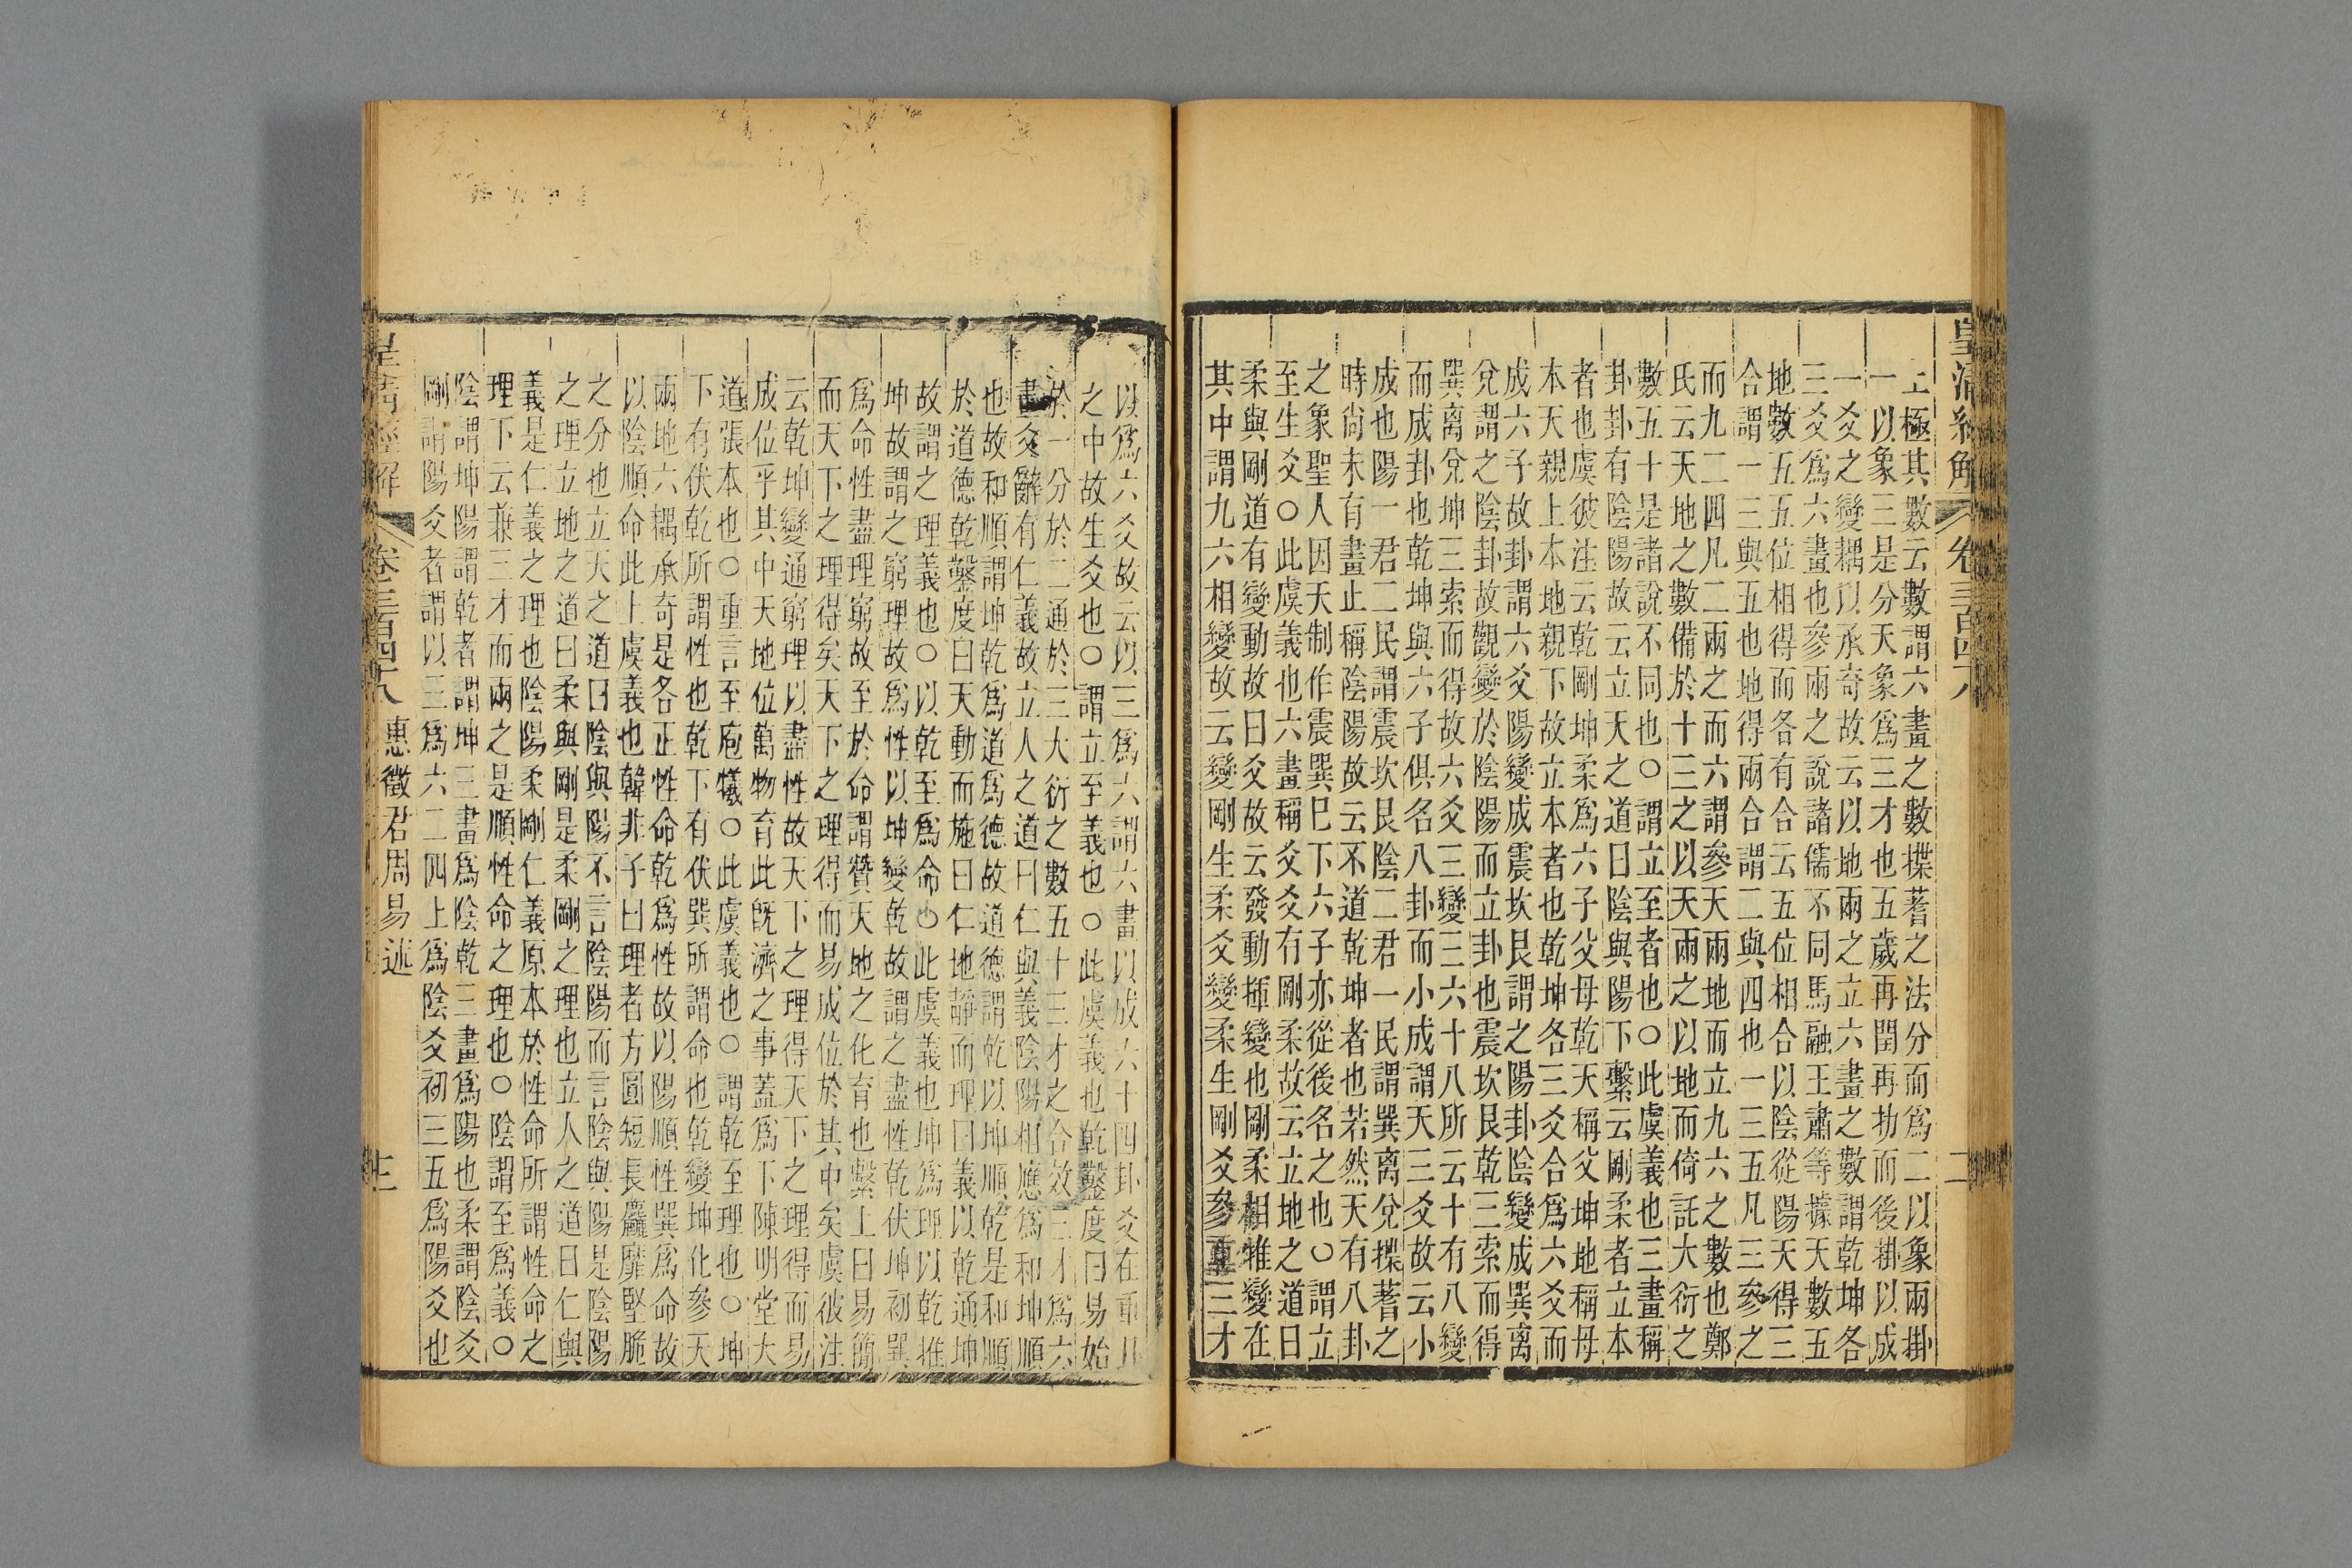 皇清經解
卷三百四十八
上極其數云數謂六畫之數揲蓍之法分而爲二以象兩掛
一以象三是分天象爲三才也五歲再閏再扐而後掛以成
一爻之變耦以承奇故云以地兩之立六畫之數謂乾坤各
三爻爲六畫也參兩之說諸儒不同馬融王肅等據天數五
地數五五位相得而各有合云五位相合以陰從陽天得三
合謂一三與五也地得兩合謂二與四也一三五凡三參之
而九二四凡二兩之而六謂參天兩地而立九六之數也鄭
氏云天地之數備於十三之以天兩之以地而倚託大衍之
數五十是諸說不同也○謂立至者也○此虞義也三畫稱
卦卦有陰陽故云立天之道曰陰與陽下繫云剛柔者立本
者也虞彼注云乾剛坤柔爲六子父母乾天稱父坤地稱母
本天親上本地親下故立本者也乾坤各三爻合爲六爻而
成六子故卦謂六爻陽變成震坎艮謂之陽卦陰變成巽离
兌謂之陰卦故觀變於陰陽而立卦也震坎艮乾三索而得
巽离兌坤三索而得故六爻三變三六十八所云十有八變
而成卦也乾坤與六子俱名八卦而小成謂天三爻故云小
成也陽一君二民謂震坎艮陰二君一民謂巽离兌揲蓍之
時尚未有畫止稱陰陽故云不道乾坤者也若然天有八卦
之象聖人因天制作震巽巳下六子亦從後名之也○謂立
至生爻○此虞義也六畫稱爻爻有剛柔故云立地之道曰
柔與剛道有變動故曰爻故云發動揮變也剛柔相推變在
其中謂九六相變故云變剛生柔爻變柔生剛爻參重三才
以爲六爻故云以三爲六謂六畫以成六十四卦爻在重卦
之中故生爻也○謂立至義也○此虞義也乾鑿度曰易始
於一分於二通於三大衍之數五十三才之合效三才爲六
畫爻辭有仁義故立人之道曰仁與義陰陽相應爲和坤順
也故和順謂坤乾爲道爲德故道德謂乾以坤順乾是和順
於道德乾鑿度曰天動而施曰仁地靜而理曰義以乾通坤
故謂之理義也○以乾至爲命○此虞義也坤爲理以乾推
坤故謂之窮理故爲性以坤變乾故謂之盡性乾伏坤初巽
爲命性盡理窮故至於命謂贊天地之化育也繫上曰易簡
而天下之理得矣天下之理得而易成位於其中矣虞彼注
云乾坤變通窮理以盡性故天下之理得天下之理得而易
成位乎其中天地位萬物育此既濟之事蓋爲下陳明堂大
道張本也○重言至庖犧○此虞義也○謂乾至理也○坤
下有伏乾所謂性也乾下有伏巽所謂命也乾變坤化參天
兩地六耦承奇是各正性命乾爲性故以陽順性巽爲命故
以陰順命此上虞義也韓非子曰理者方圓短長麤靡堅脆
之分也立天之道曰陰與陽不言陰陽而言陰與陽是陰陽
之理立地之道曰柔與剛是柔剛之理也立人之道曰仁與
義是仁義之理也陰陽柔剛仁義原本於性命所謂性命之
理下云兼三才而兩之是順性命之理也○陰謂至爲義○
陰謂坤陽謂乾者謂坤三畫爲陰乾三畫爲陽也柔謂陰爻
剛謂陽爻者謂以三爲六二四上爲陰爻初三五爲陽爻也
皇清經解
卷三百四十八
惠徵君周易述